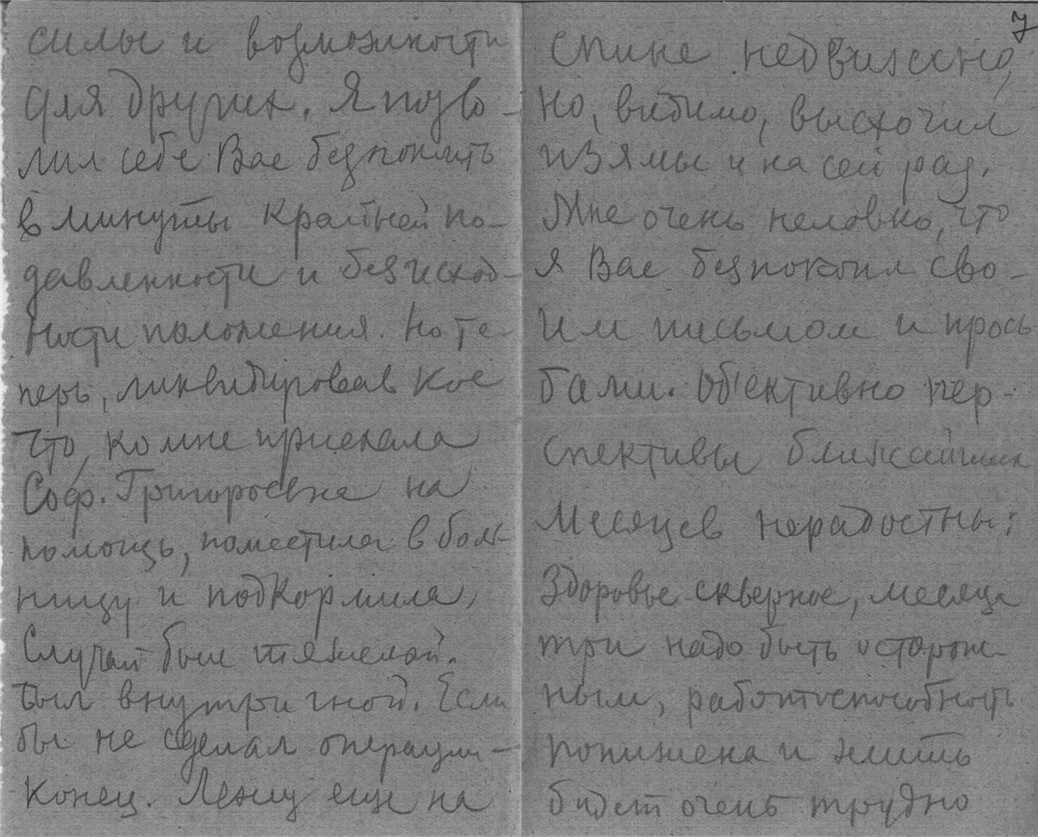 силы и возможности
для других. Я позво-
лил себе Вас безпокоить
в минуты крайней по-
давленности и безисход-
ности положения. Но те-
перь, ликвидировав кое
что, ко мне приехала
Соф. Григорьевна на
помощь, поместила в боль-
ницу и подкормила,
Случай был тяжелой.
был внутри гной. Если
бы не сделал операции-
конец. Лежу еще на
7
спине недвижено,
но, видимо, выскочил
из ямы и на сей раз.
Мне очень неловко, что
я Вас безпокоил сво-
им письмом и прось
бами. Об'ективно пер-
спективы ближайших
месяцев нерадостны:
Здоровье скверное, месяца
три надо быть осторож-
ным, работоспособность
понижена и жить
будет очень трудно